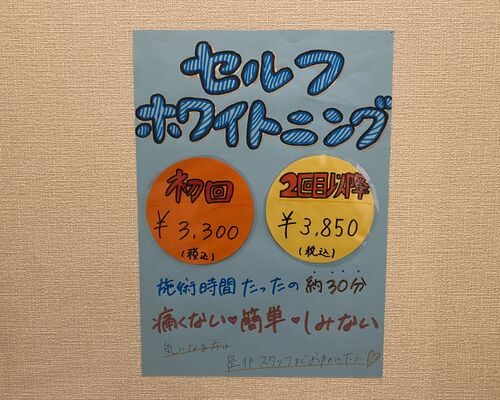 セルフ
ホワイトニング
初回
¥3,300
(税込)
2回目以降
¥3,850
(税込)
施術時間たったの約30分
痛くない♥簡単♥しみない
気になる方は
是非スタッフまでお声がけください♡